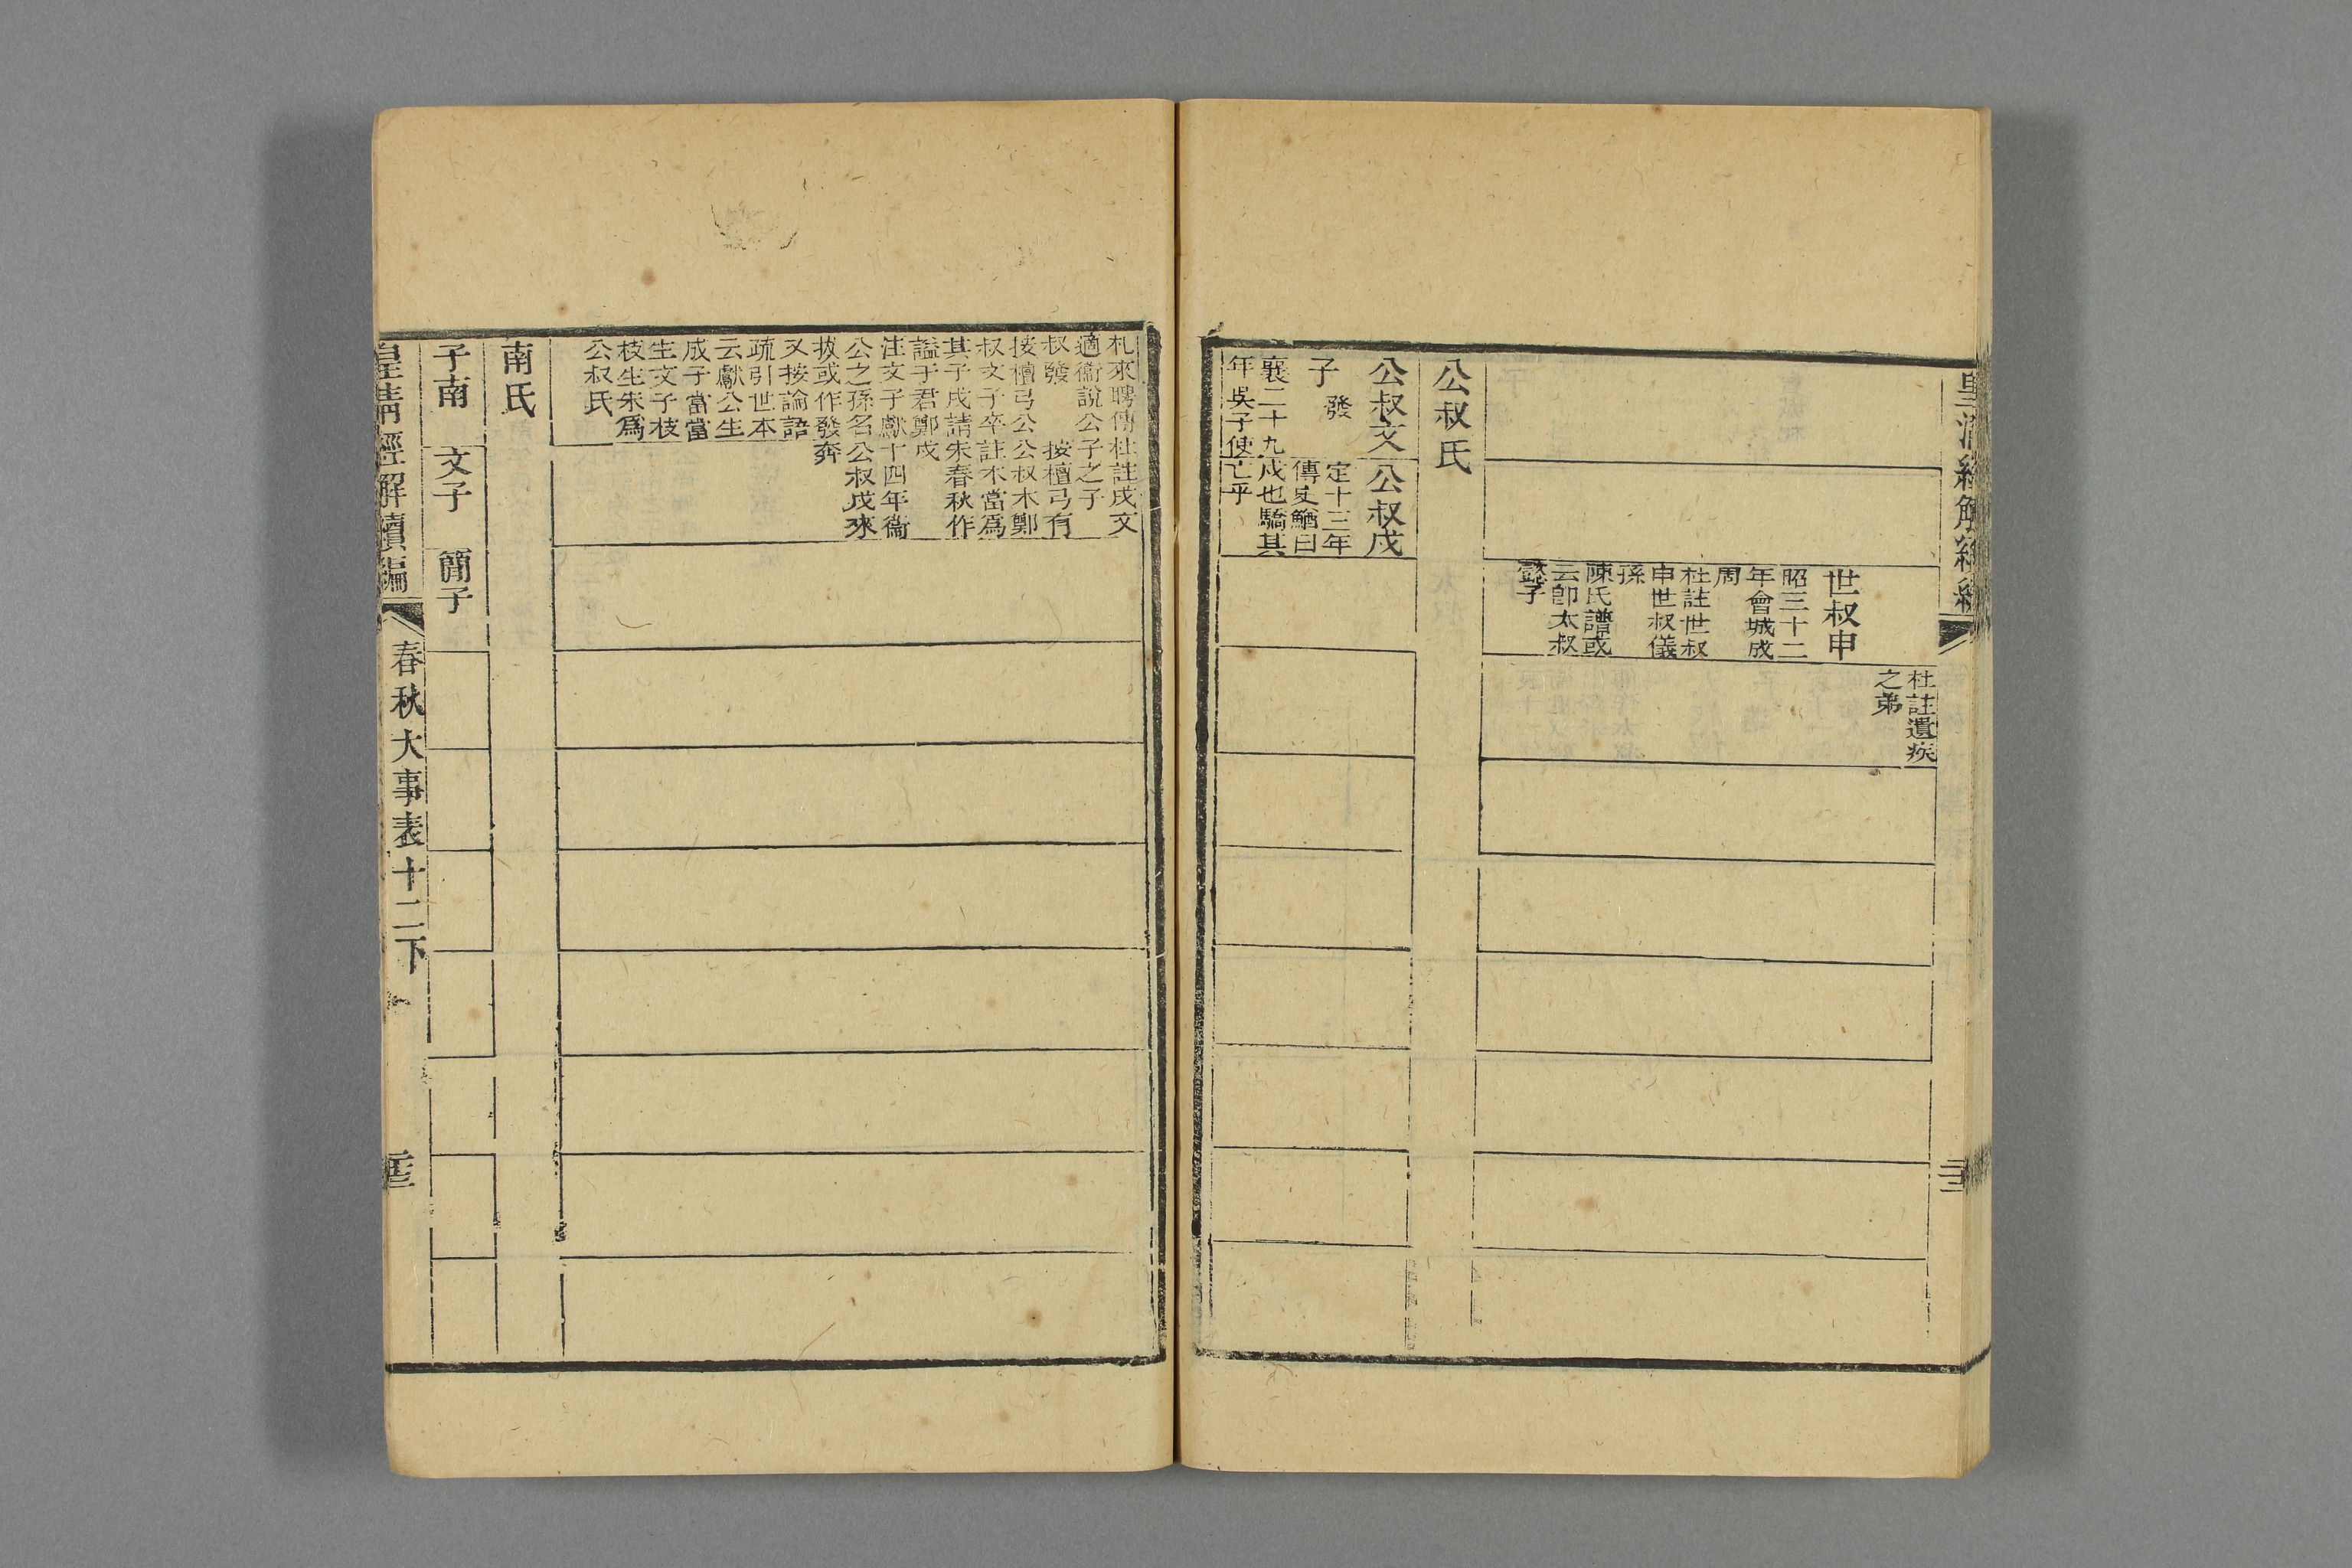 皇清經解續編
杜註遺疾
之弟
世叔申
昭三十二
年會城成
周
杜註世叔
申世叔儀
孫
陳氏譜或
云卽太叔
懿子
公叔氏
公叔文
子 發
襄二十九
年吳子使
公叔戍
定十三年
傳史鰌曰
戍也驕其
亡乎
札來聘傳
適衞說公
叔發
按檀弓公
叔文子卒
其子戍請
諡于君鄭
注文子獻
公之孫名
拔或作發
又按論語
疏引世本
云獻公生
成子當當
生文子枝
枝生朱爲
公叔氏
杜註戍文
子之子
按檀弓有
公叔木鄭
註木當爲
朱春秋作
戍
十四年衞
公叔戍來
奔
南氏
子南
文子
簡子
皇清經解續編
春秋大事表十二下